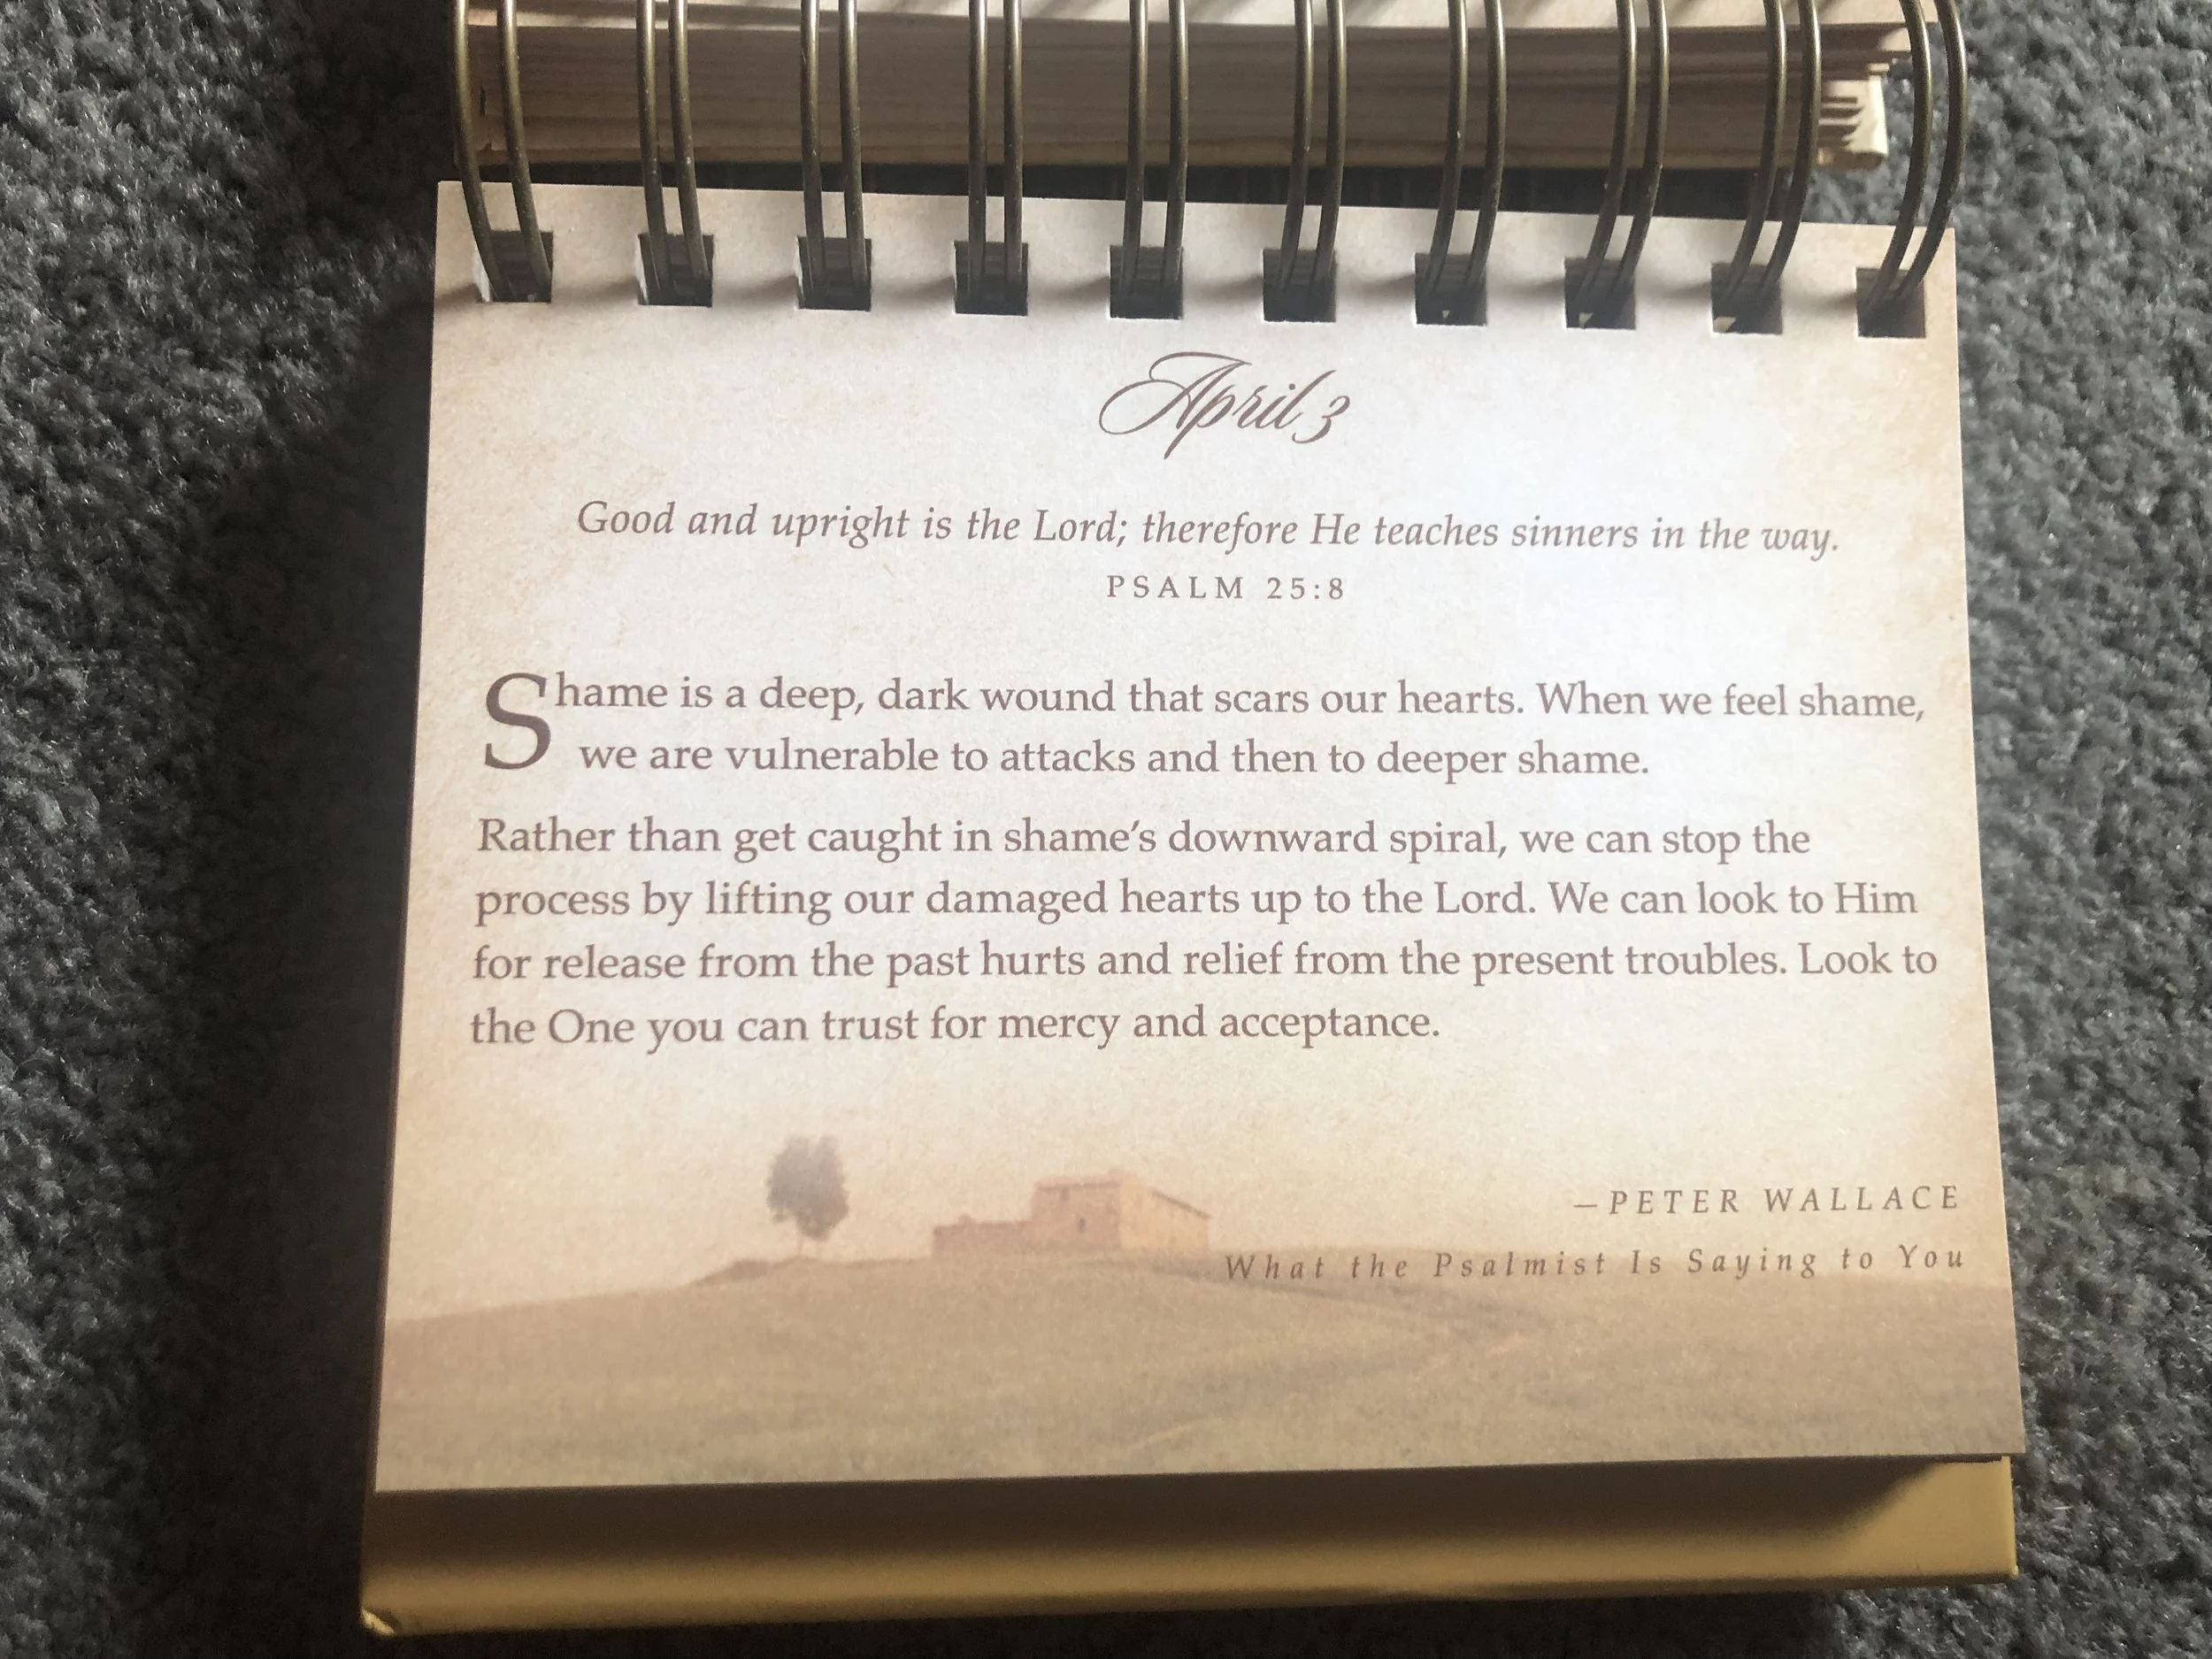 April 3
Good and upright is the Lord; therefore He teaches sinners in the way.
PSALM 25:8
Shame is a deep, dark wound that scars our hearts. When we feel shame,
we are vulnerable to attacks and then to deeper shame.
Rather than get caught in shame’s downward spiral, we can stop the
process by lifting our damaged hearts up to the Lord. We can look to Him
for release from the past hurts and relief from the present troubles. Look to
the One you can trust for mercy and acceptance.
—PETER WALLACE
What the Psalmist Is Saying to You